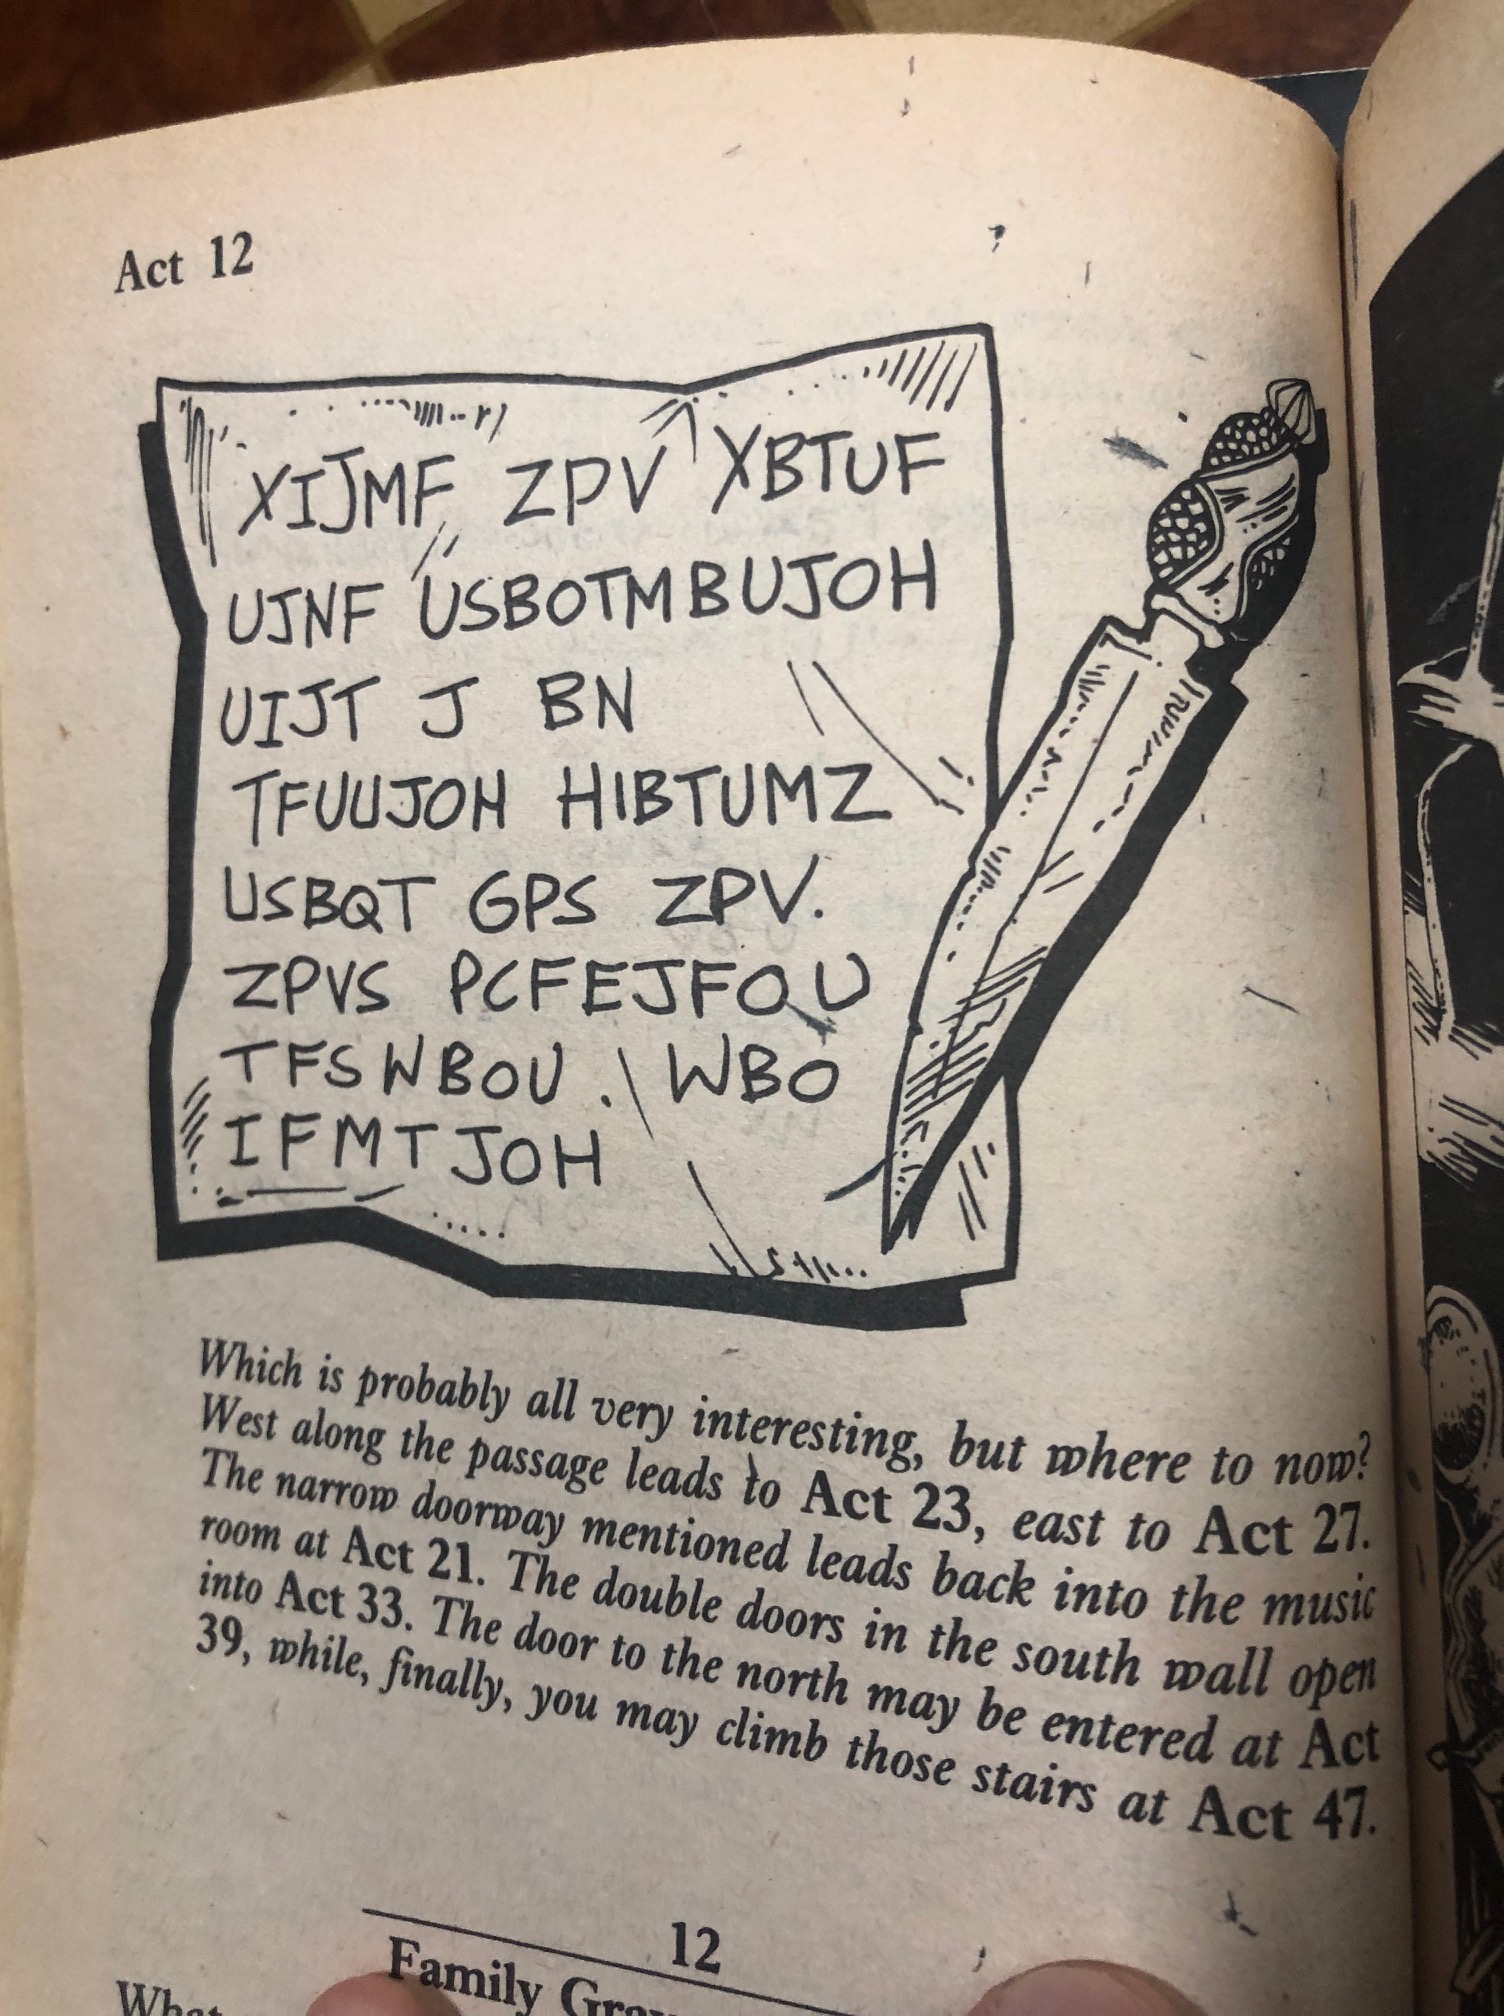 Act 12
XIJMF ZPV XBTUF
UJNF USBOTMBUJOH
UIJT J BN
TFUUJOH HIBTUMZ
USBQT GPS ZPV.
ZPVS PCFEJFOU
TFSWBOU. WBO
IFMTJOH
Which is probably all very interesting, but where to now?
West along the passage leads to Act 23, east to Act 27.
The narrow doorway mentioned leads back into the music
room at Act 21. The double doors in the south wall open
into Act 33. The door to the north may be entered at Act
39, while, finally, you may climb those stairs at Act 47.
12
Family